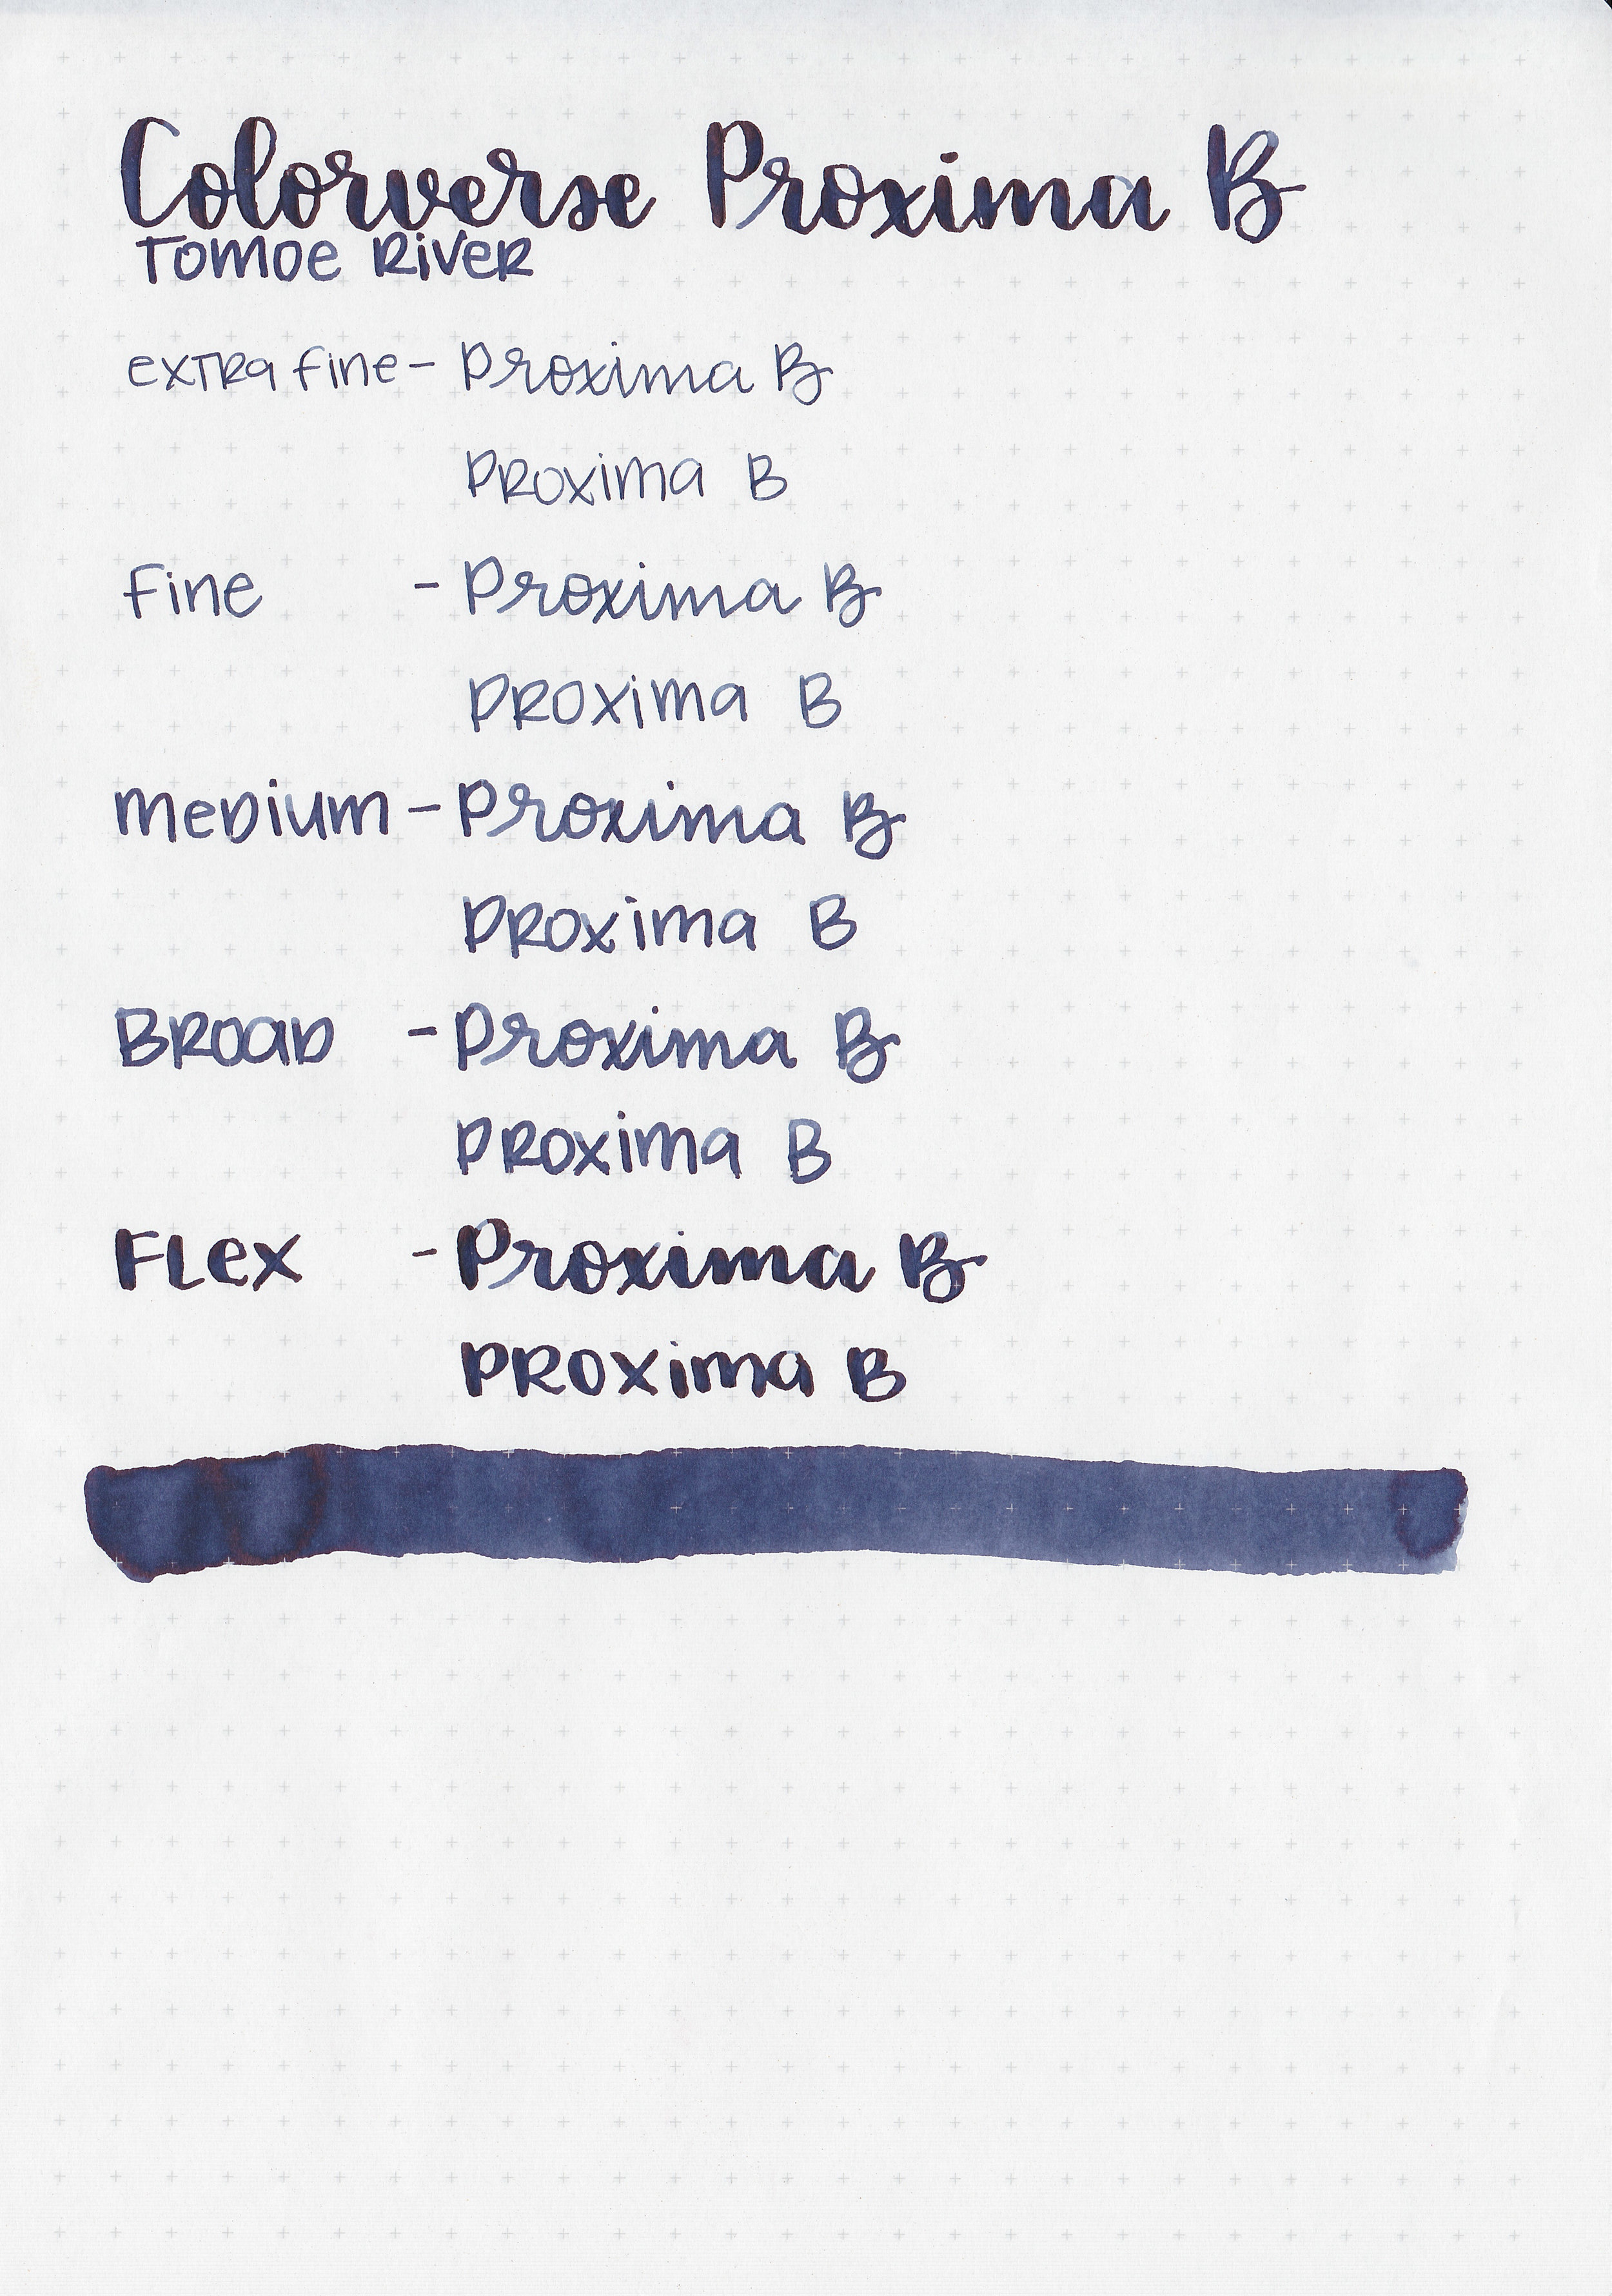 Colorverse Proxima B
Tomoe River
extra fine - Proxima B
Proxima B
Fine - Proxima B
Proxima B
Medium - Proxima B
Proxima B
Broad - Proxima B
Proxima B
Flex - Proxima B
Proxima B